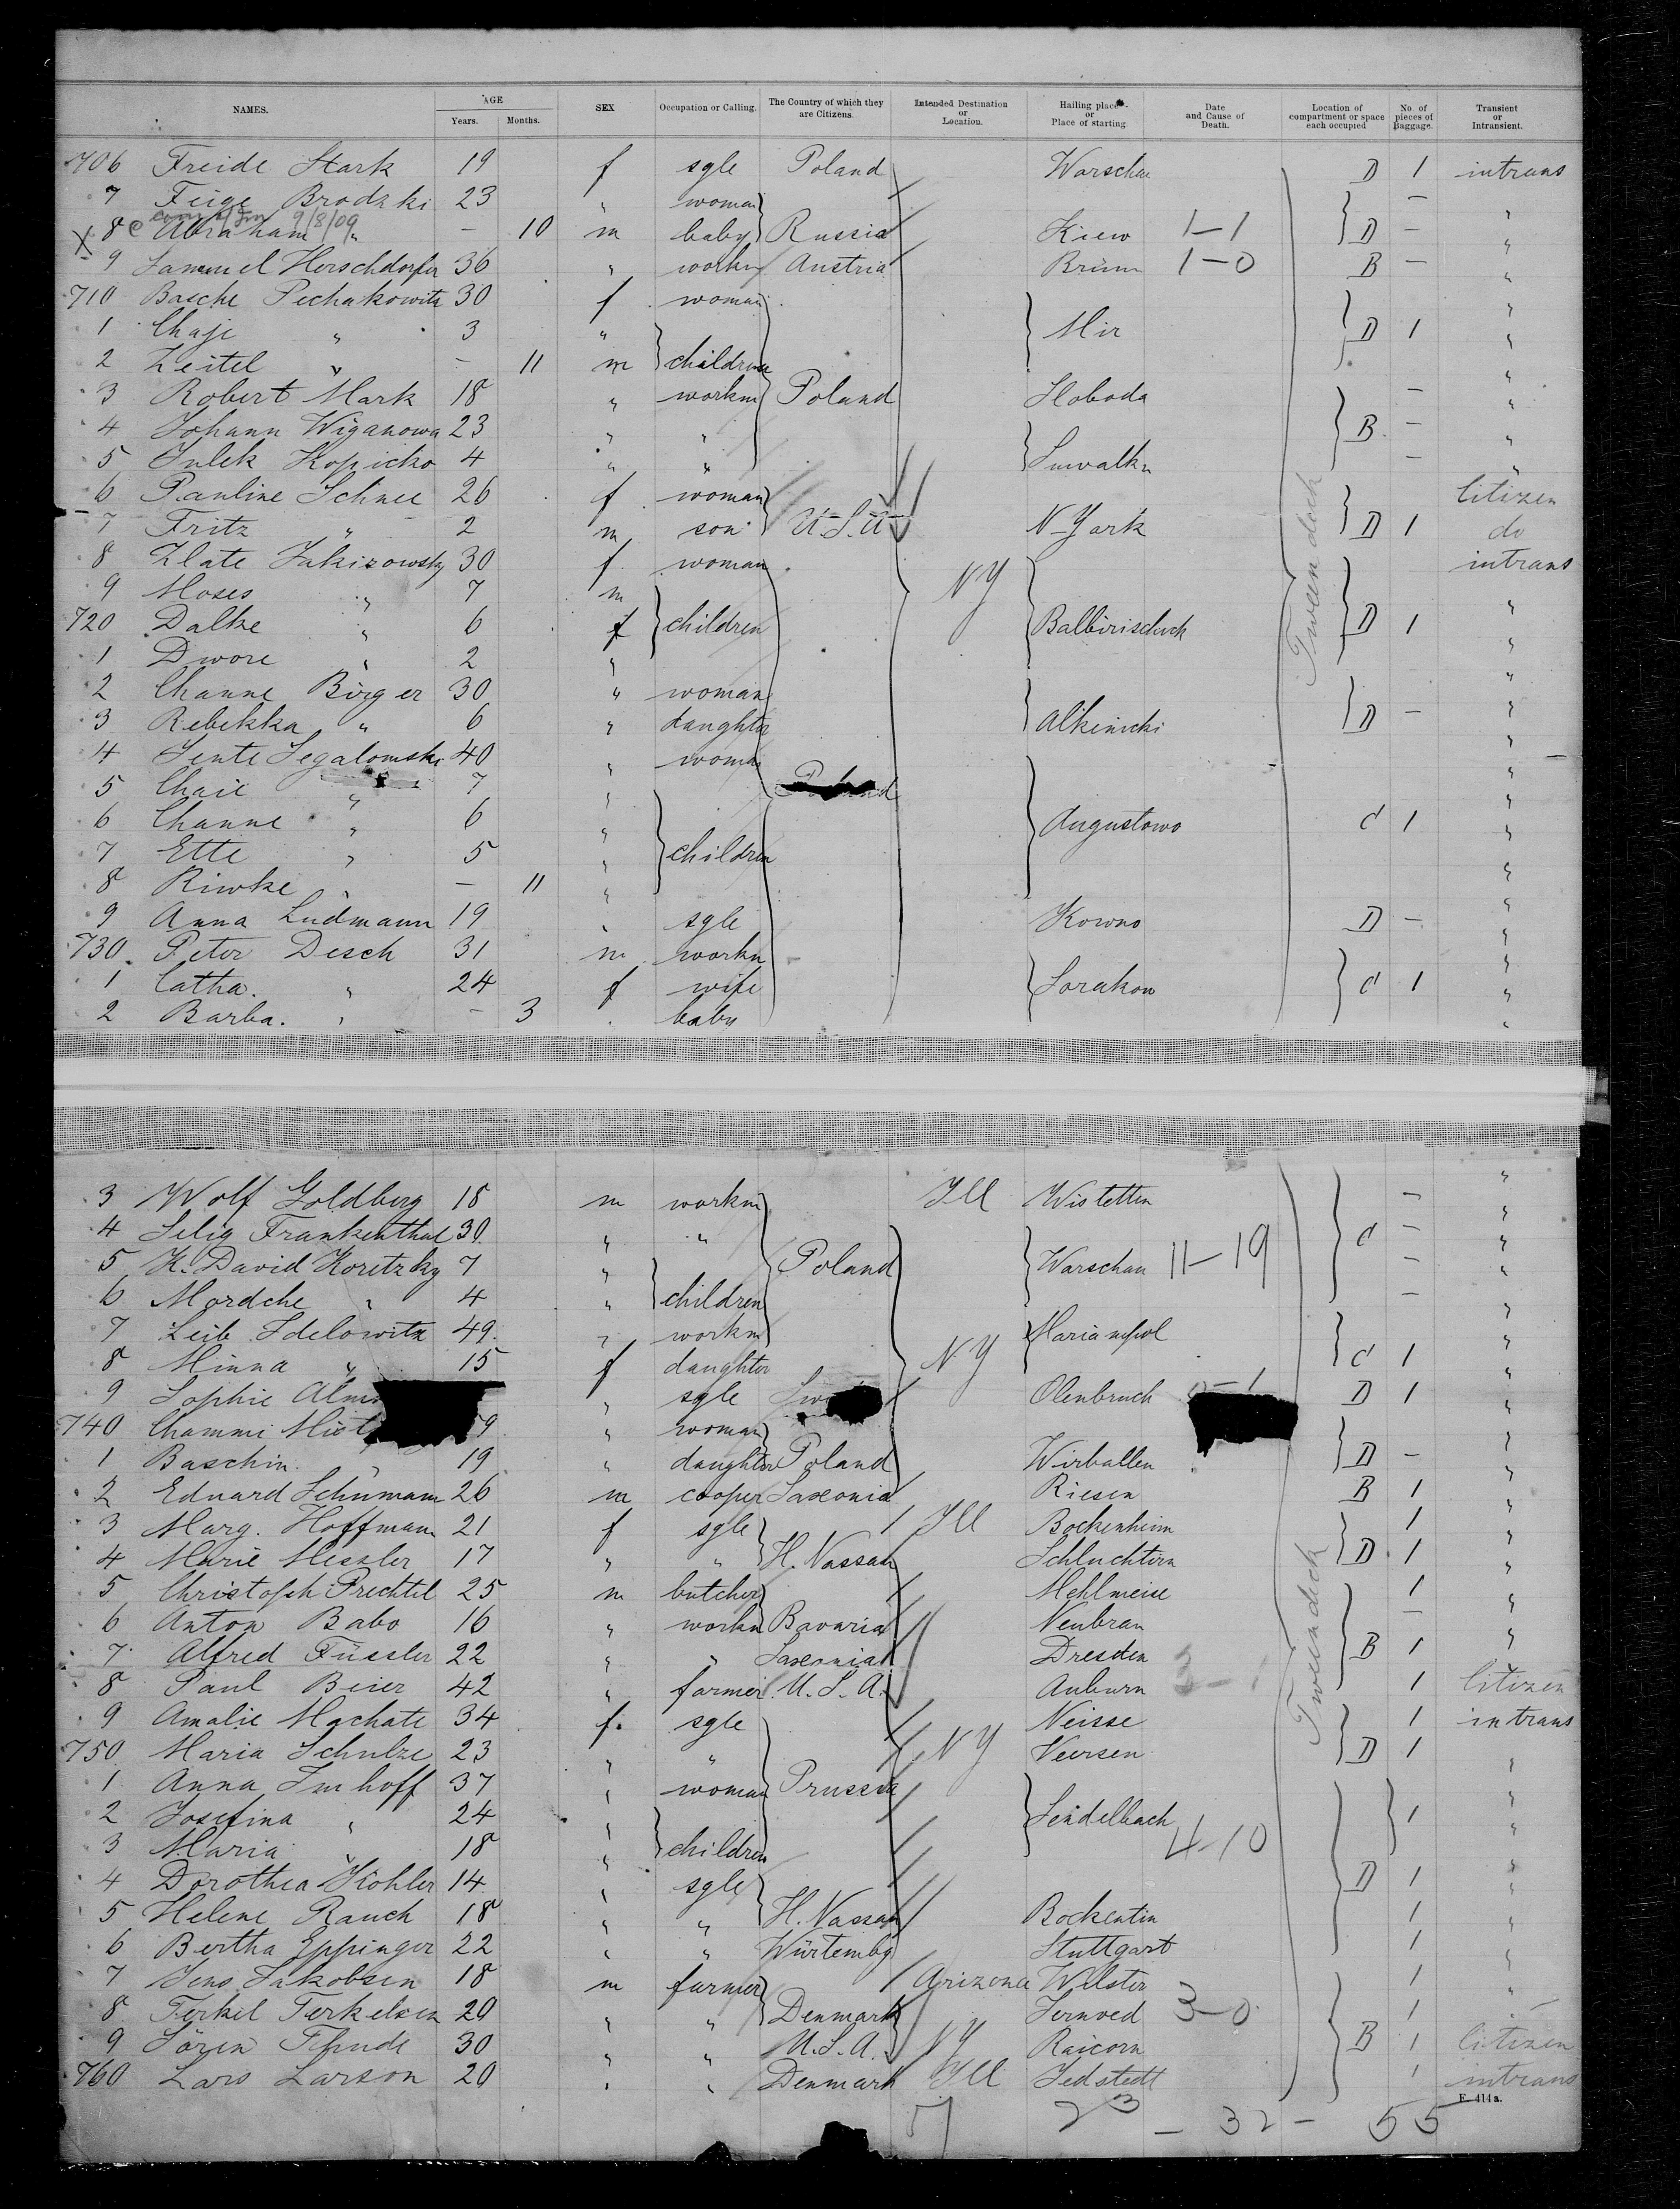 NAMES. AGE Years. Months. SEX Occupation or Calling. The Country of which they are Citizens. Intended Destination or Location. Hailing place or Place of starting. Date and Cause of Death. Location of compartment or space each occupied No. of pieces of Baggage. Transient or Intransient.
706 Freide Stark 19 f sgle Poland Warschau D 1 intrans
7 Feige Brodzki 23 " woman — "
9/8/09
X 8 Abraham " — 10 m baby Russia Kiew 1-1 D — "
9 Samuel Herschdorfer 36 " workm Austria Brünn 1-0 B — "
710 Basche Pechakowitz 30 f woman "
1 Chaje " 3 " Mir D 1 "
2 Zeitel " — 11 m children "
3 Robert Mark 18 " workm Poland Sloboda — "
4 Johann Wiganowa 23 " " B — "
5 Julek Kopicko 4 " " Suwalkn — "
6 Pauline Schnee 26 f woman Citizen
7 Fritz " 2 m son U.S.A N-York D 1 do
8 Zlate Jakirowsky 30 f woman NY intrans
9 Moses " 7 m "
720 Dalke " 6 f children Balbirischuk D 1 "
1 Dwore " 2 " "
2 Channe Börger 30 " woman "
3 Rebekka " 6 " daughter Alkenicki D — "
4 Jente Segalomski 40 " woman "
5 Chaie " 7 " Poland "
6 Channe " 6 " Augustowo C 1 "
7 Ette " 5 " children "
8 Riwke " — 11 " "
9 Anna Ludmann 19 " sgle Kowno D — "
730 Peter Desch 31 m workm "
1 Catha. " 24 f wife Sorakow C 1 "
2 Barba. " — 3 baby "
Tween deck
3 Wolf Goldberg 18 m workm Ill Wistetten — "
4 Selig Frankenthal 30 " " C — "
5 K. David Koretzky 7 " Poland Warschau 11-19 — "
6 Mordche " 4 " children — "
7 Leib Idelowitz 49 " workm Mariampol "
8 Minna " 15 f daughter NY C 1 "
9 Sophie " sgle Olenbruch D 1 "
740 Chammi 9 " woman "
1 Baschin " 19 " daughter Poland Wirballen D — "
2 Eduard Schümann 26 m cooper Saxonia Riesen B 1 "
3 Marg. Hoffmann 21 f sgle Ill Bockenheim 1 "
4 Marie Messler 17 " " H. Nassau Schluchtern D 1 "
5 Christoph Prechtel 25 m butcher Mehlmeise 1 "
6 Anton Babo 16 " workm Bavaria Neubrau — "
7 Alfred Füssler 22 " " Saxonia Dresden B 1 "
8 Paul Beier 42 " farmer U.S.A. Auburn 3-1 1 Citizen
9 Amalie Machate 34 f. sgle Neisse 1 intrans
750 Maria Schulze 23 " " NY Veersen D 1 "
1 Anna Imhoff 37 " woman Prussia "
2 Josefina " 24 " Seidelbach 1 "
3 Maria " 18 " children 4-10 "
4 Dorothea Köhler 14 " sgle D 1 "
5 Helene Rauch 18 " " H. Nassau Bockentin 1 "
6 Bertha Eppinger 22 " " Würtembg Stuttgart 1 "
7 Jens Jakobsen 18 m farmer Arizona Wilster 1 "
8 Terkel Terkelsen 20 " " Denmark Jernved 3-0 1 "
9 Sören Thude 30 " " U.S.A. NY Raicorn B 1 Citizen
760 Lars Larson 20 " " Denmark Ill Jedstedt 1 intrans
Tween deck
F 414a.
23 - 32 - 55